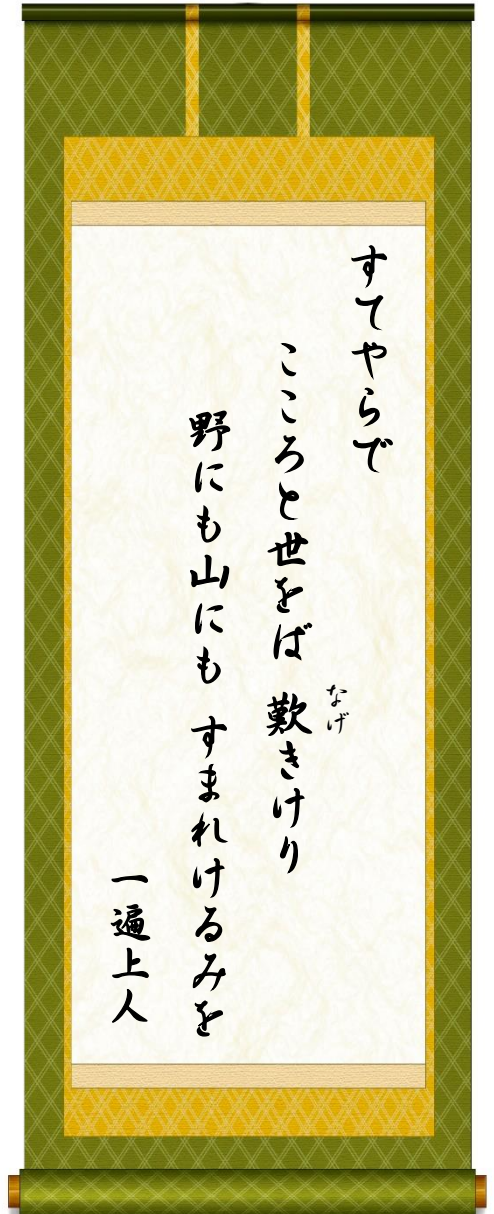 すてやらで
こころと世をば 歎きけり
なげ
野にも山にも すまれけるみを
一遍上人